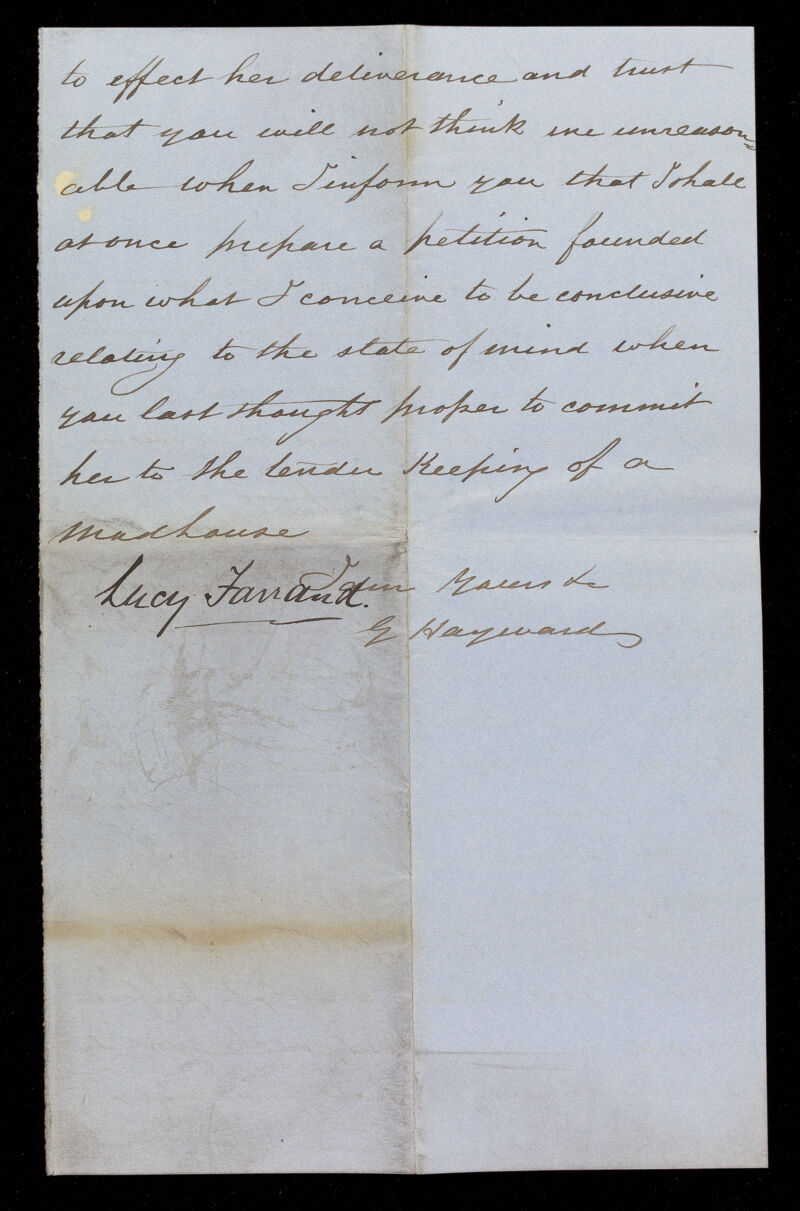 to effect her deliverance and trust
that you will not think me unreason=
able when I inform you that I shall
at once prepare a petition founded
upon what I conceive to be conclusive
relating to the state of mind when
you last thought proper to commit
her to the tender Keeping of a
Madhouse
I am Yours &c
Lucy Farrand.
G Hayward